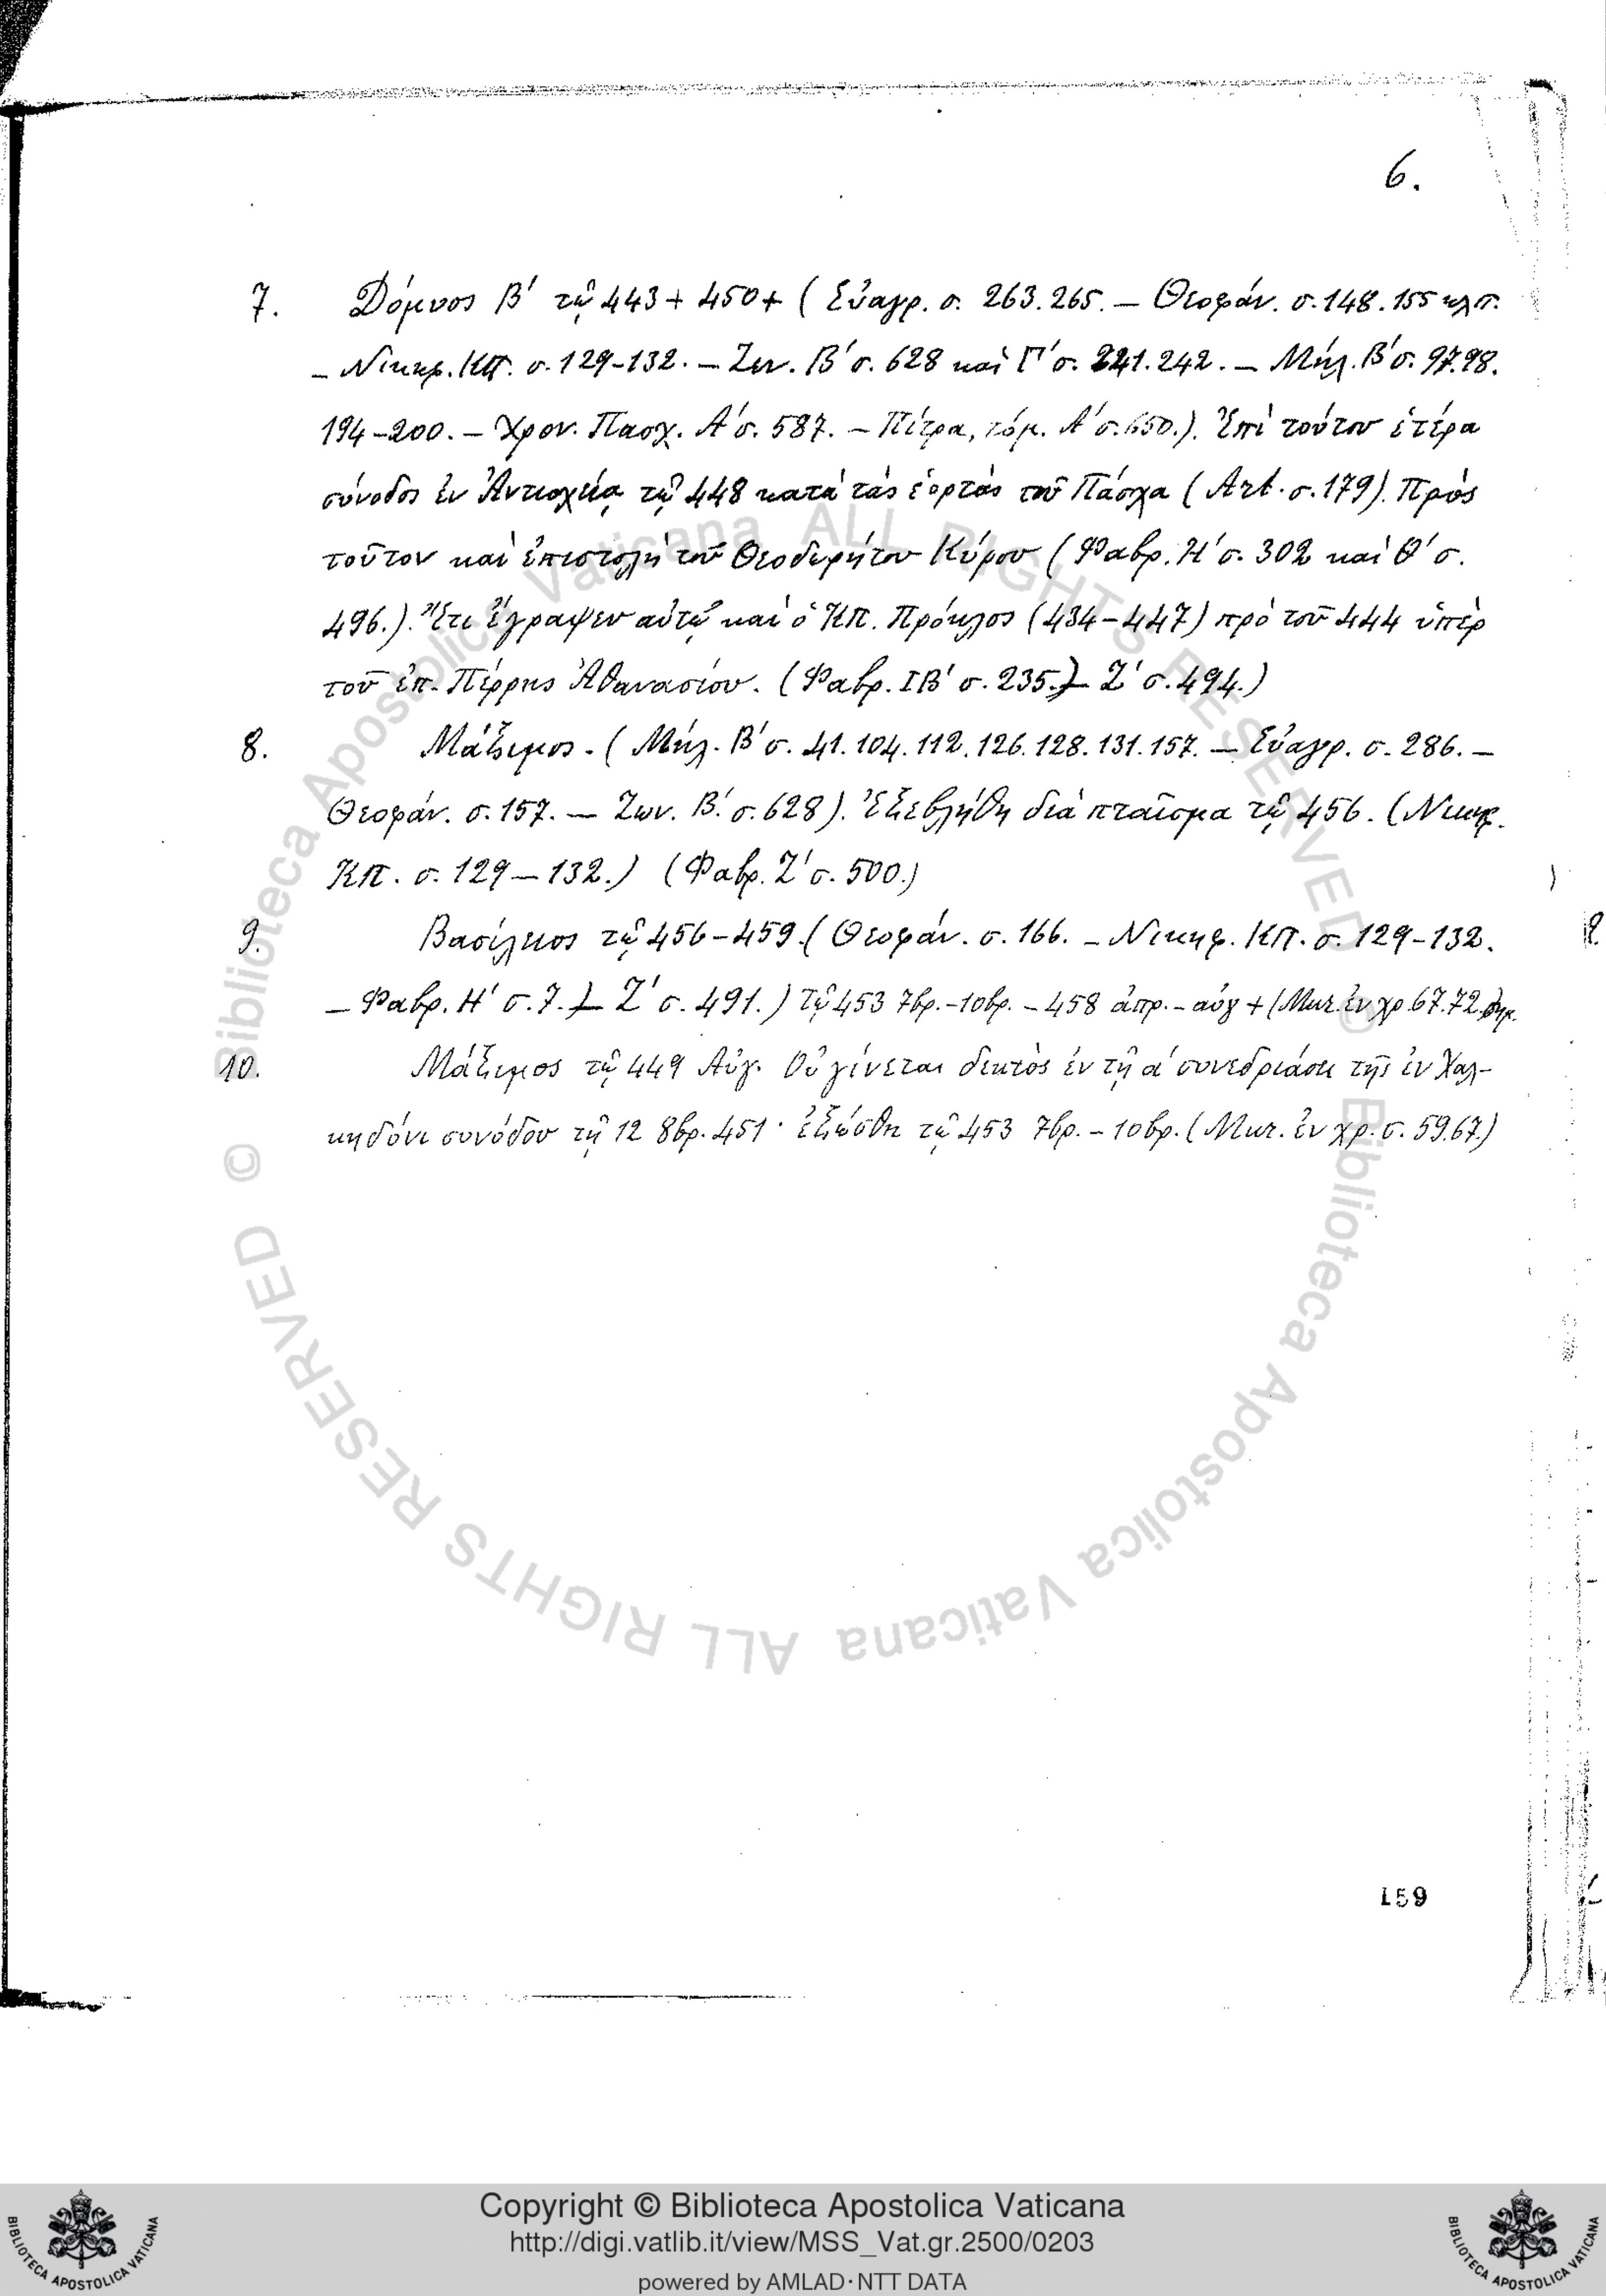 6.
7. Δόμνος Β' τῷ 443 + 450 + (Εὐαγρ. σ. 263. 265. — Θεοφάν. σ. 148. 155 κλπ.
– Νικηφ. ΚΠ. σ. 129-132. – Ζων. Β' σ. 628 καὶ Γ' σ. 241. 242. – Μήλ. Β' σ. 97. 98.
194-200. – Χρον. Πασχ. Α' σ. 587. – Πίτρα, τόμ. Α' σ. 650.). Ἐπὶ τούτου ἑτέρα
σύνοδος ἐν Ἀντιοχείᾳ τῷ 448 κατὰ τὰς ἑορτὰς τοῦ Πάσχα (Art. σ. 179). Πρὸς
τοῦτον καὶ ἐπιστολὴ τοῦ Θεοδωρήτου Κύρου (Φαβρ. Η' σ. 302 καὶ Θ' σ.
496.). Ἔτι ἔγραψεν αὐτῷ καὶ ὁ ΚΠ. Πρόκλος (434-447) πρὸ τοῦ 444 ὑπὲρ
τοῦ ἐπ. Πέρρης Ἀθανασίου. (Φαβρ. ΙΒ' σ. 235.) – Ζ' σ. 494.)
8. Μάξιμος. (Μήλ. Β' σ. 41. 104. 112. 126. 128. 131. 157. – Εὐαγρ. σ. 286. –
Θεοφάν. σ. 157. – Ζων. Β'. σ. 628). Ἐξεβλήθη διὰ πταῖσμα τῷ 456. (Νικηφ.
ΚΠ. σ. 129-132.) (Φαβρ. Ζ' σ. 500.)
9. Βασίλειος τῷ 456-459. (Θεοφάν. σ. 166. – Νικηφ. ΚΠ. σ. 129-132.
– Φαβρ. Η' σ. 7.) – Ζ' σ. 491.) Τῷ 453 7βρ. -10βρ. – 458 ἀπρ. – αὐγ + (Μυτ. ἐν χρ. 67. 72
10. Μάξιμος τῷ 449 Αὐγ. Οὐ γίνεται δεκτὸς ἐν τῇ α' συνεδριάσει τῆς ἐν Χαλ-
κηδόνι συνόδου τῇ 12 8βρ. 451· ἐξώσθη τῷ 453 7βρ. – 10βρ. (Μυτ. ἐν χρ. σ. 59. 67.)
159
© Biblioteca Apostolica Vaticana ALL RIGHTS RESERVED
© Biblioteca Apostolica Vaticana ALL RIGHTS RESERVED
Copyright © Biblioteca Apostolica Vaticana
http://digi.vatlib.it/view/MSS_Vat.gr.2500/0203
powered by AMLAD·NTT DATA
BIBLIOTECA APOSTOLICA VATICANA
BIBLIOTECA APOSTOLICA VATICANA